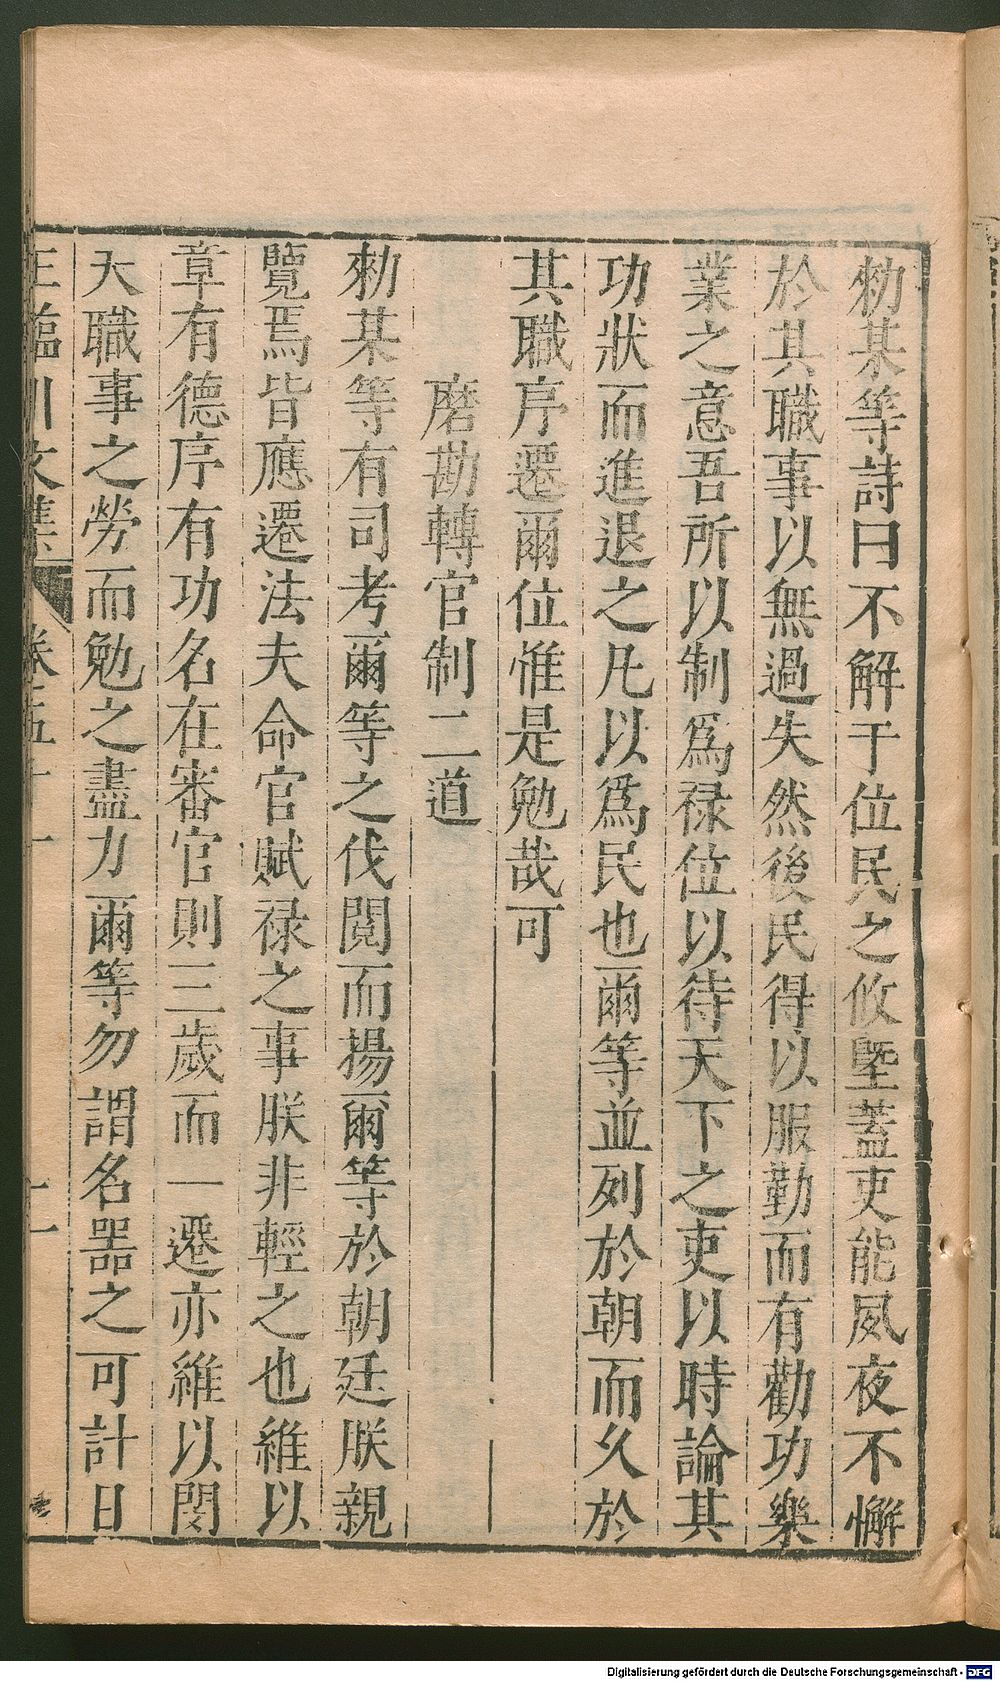 勑某等詩曰不解于位民之攸墍蓋吏能夙夜不懈
於其職事以無過失然後民得以服勤而有勸功樂
業之意吾所以制爲禄位以待天下之吏以時論其
功狀而進退之凡以爲民也爾等並列於朝而久於
其職序遷爾位惟是勉哉可
磨勘轉官制二道
勑某等有司考爾等之伐閲而揚爾等於朝廷朕親
覽焉皆應遷法夫命官賦禄之事朕非輕之也維以
章有德序有功名在審官則三歲而一遷亦維以閔
大職事之勞而勉之盡力爾等勿謂名器之可計日
王臨川文集 卷五十一 十一
Digitalisierung gefördert durch die Deutsche Forschungsgemeinschaft - DFG